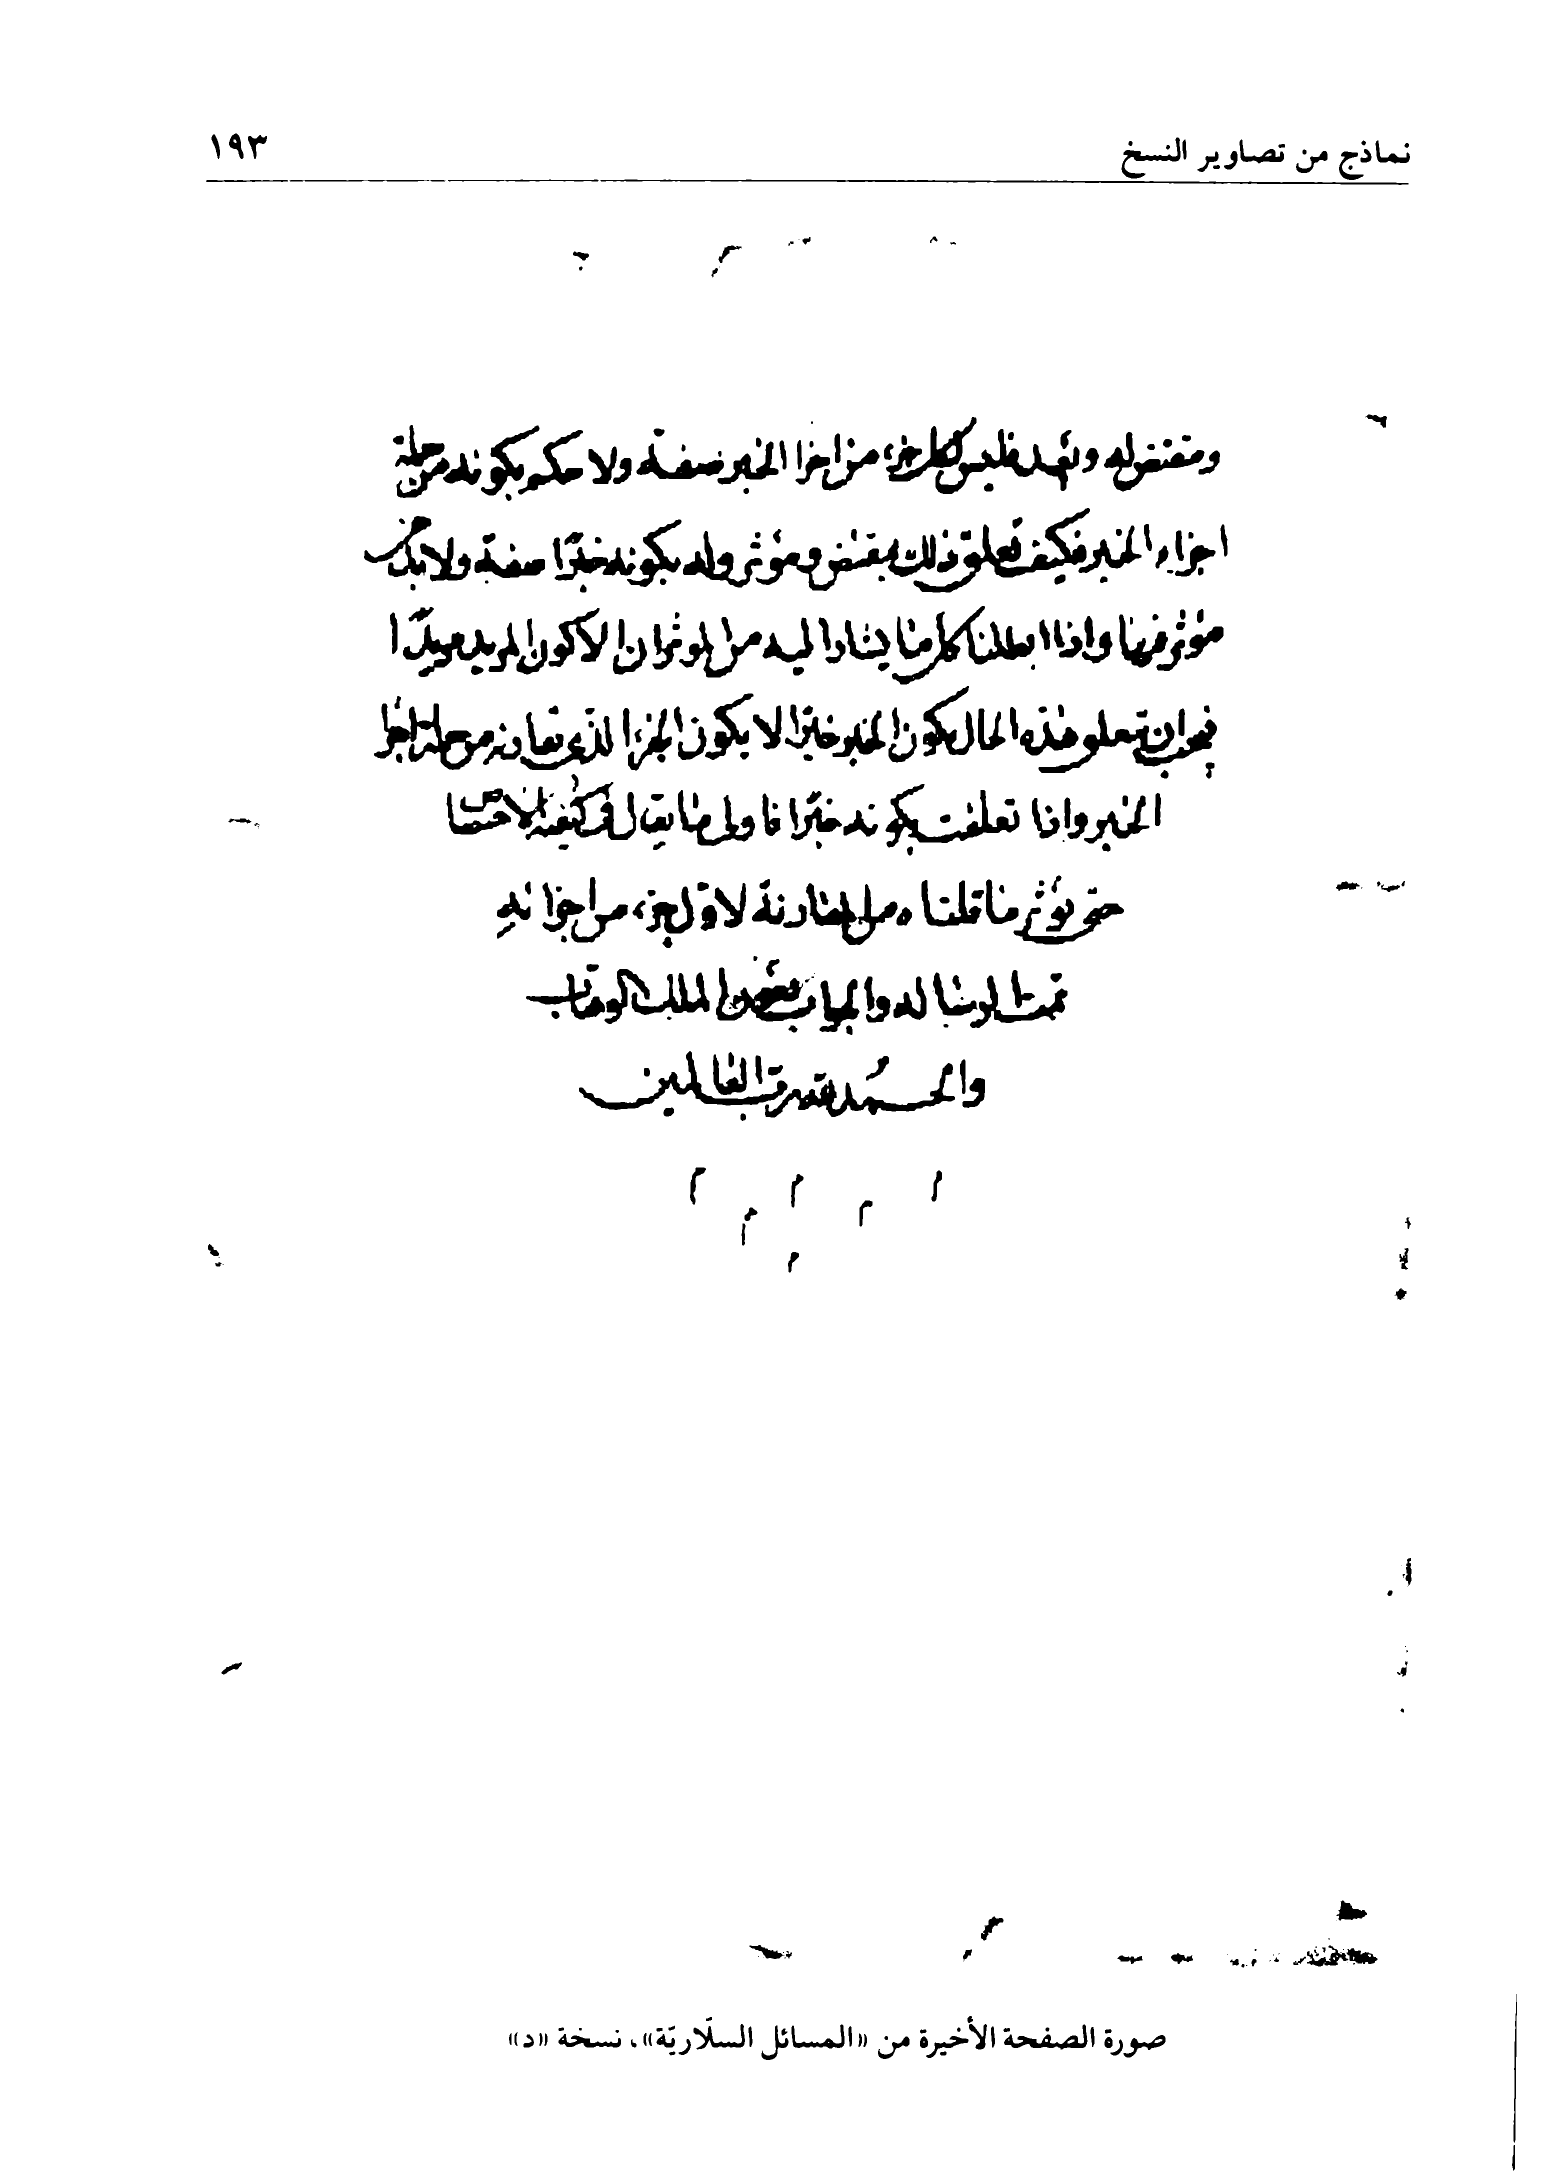 نماذج من تصاوير النسخ
١٩٣
ومقتض له وبعد فليس لكل جزء من اجزا الخبر صفة ولا حكم بكونه من جملة
اجزاء الخبر فكيف تعلق ذلك بمقتض ومؤثر وله بكونه خبرًا صفة ولا بد من
مؤثر فيها واذا ابطلنا كل ما يشار اليه من المؤثران الا كون المريد مريدًا
فيجب ان تتعلق هذه الحال بكون الخبر خبرًا لا بكون الجزء الذى تقارنه من جملة اجزا
الخبر واذا تعلقت بكونه خبرًا فاولى ما يقال فى كيفية الاختصاص
حتى يؤثر ما قلناه من المقارنة لاوّل جزء من اجزائه
تمت الرسالة والجواب بعون الملك الوهاب
والحمد لله رب العالمين
م م م م م م
صورة الصفحة الأخيرة من «المسائل السلّاريّة»، نسخة «د»